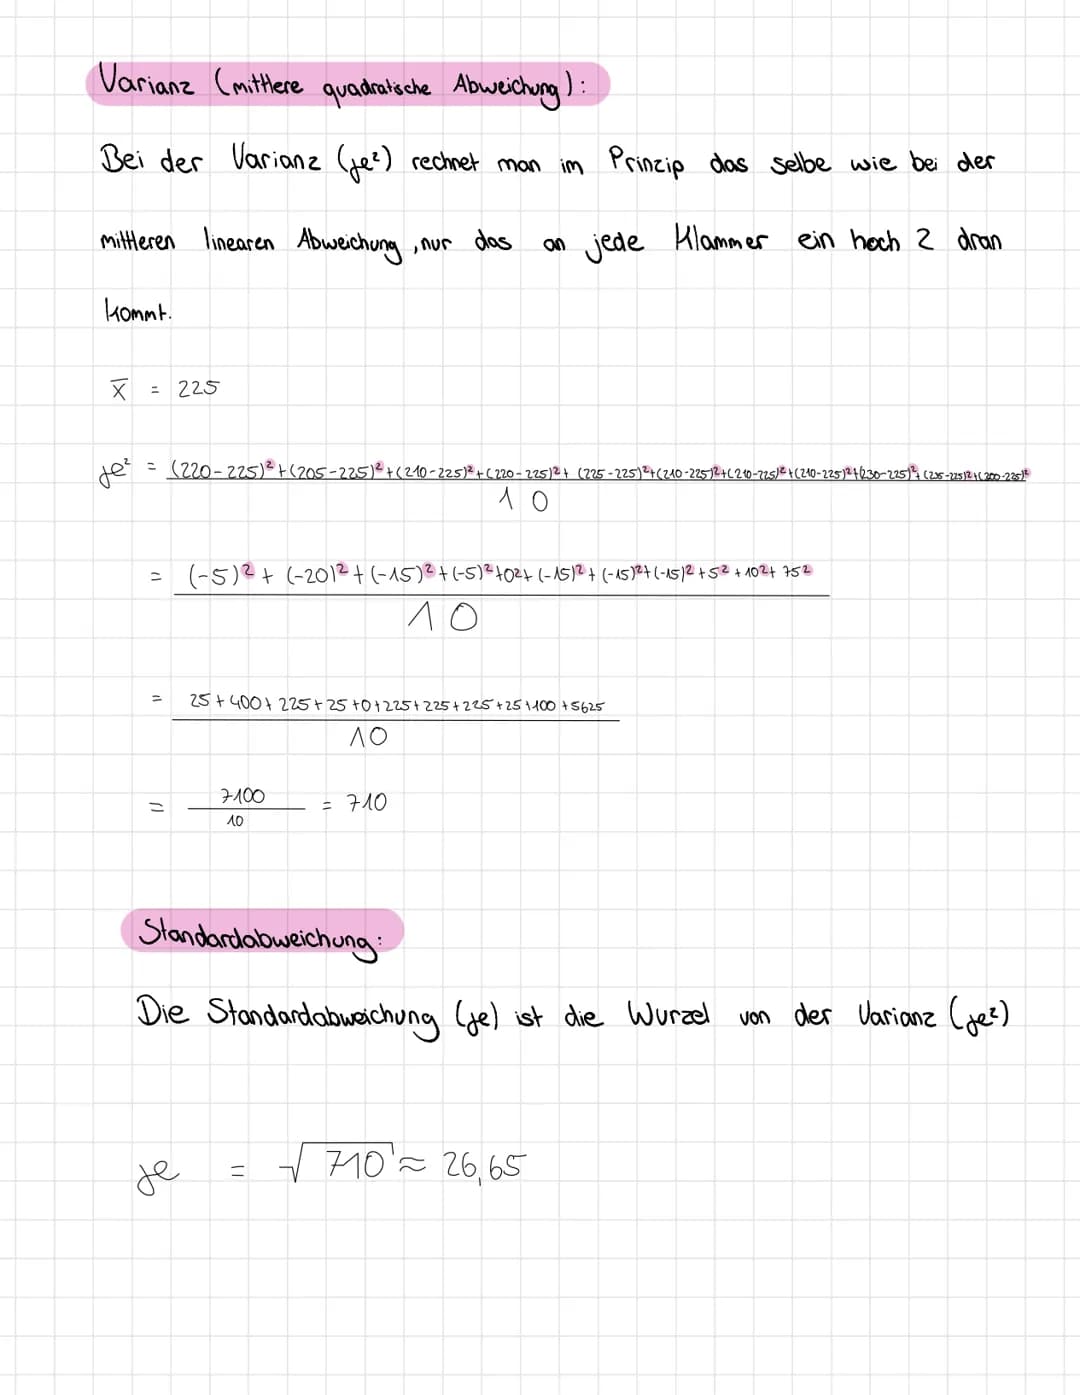 Varianz (mittlere quadratische Abweichung):
Bei der Varianz (je²) rechnet man im Prinzip das selbe wie bei der
mittleren linearen Abweichung, nur das an jede Klammer ein hoch 2 dran
kommt.
x̄ = 225
je² = (220-225)²+(205-225)²+(210-225)²+(220-225)²+(225-225)²+(210-225)²+(210-225)²+(210-225)²+(230-225)²+(235-225)²+(300-225)²
10
= (-5)²+(-20)²+(-15)²+(-5)²+0²+(-15)²+(-15)²+(-15)²+5²+10²+75²
10
= 25+400+225+25+0+225+225+225+25+100+5625
10
= 7100 = 710
10
Standardabweichung:
Die Standardabweichung (je) ist die Wurzel von der Varianz (je²)
je = √710 ≈ 26,65